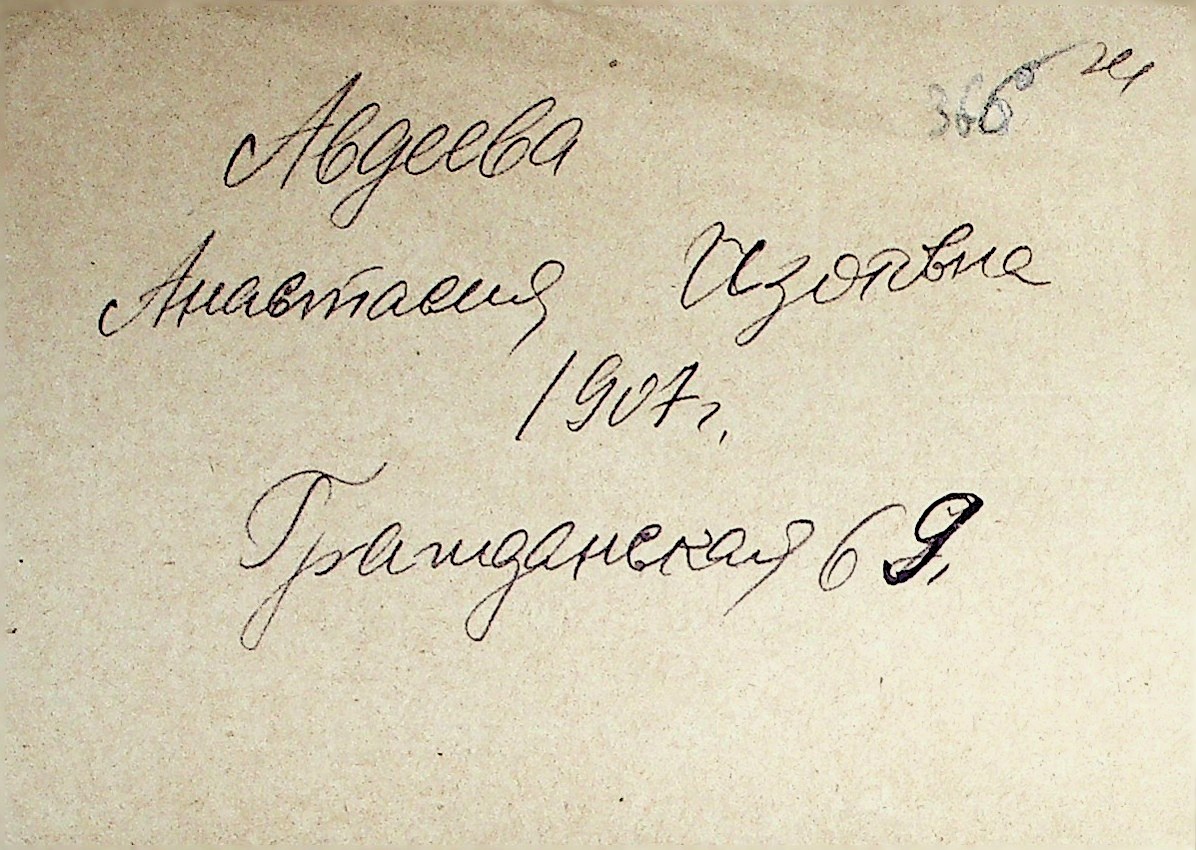 366 ж
Авдеева
Анастасия Изотвна
1907 г.
Гражданская 69.